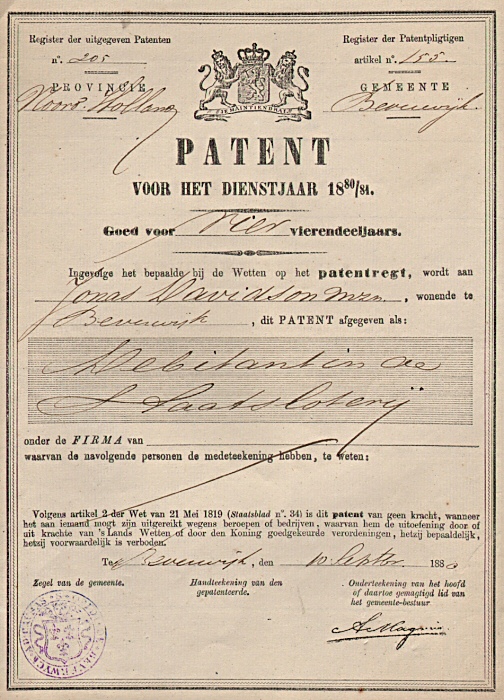 Register der uitgegeven Patenten
n°. 205
PROVINCIE
Noord-Holland
JE MAINTIENDRAI
Register der Patentpligtigen
artikel n°. 155.
GEMEENTE
Beverwijk.
PATENT
VOOR HET DIENSTJAAR 1880/81.
Goed voor Vier vierendeeljaars.
Ingevolge het bepaalde bij de Wetten op het patentregt, wordt aan
Jonas Davidson Mzn, wonende te
Beverwijk, dit PATENT afgegeven als:
Debitant in de
Staatsloterij
onder de FIRMA van
waarvan de navolgende personen de medeteekening hebben, te weten:
Volgens artikel 2 der Wet van 21 Mei 1819 (Staatsblad n°. 34) is dit patent van geen kracht, wanneer
het aan iemand mogt zijn uitgereikt wegens beroepen of bedrijven, waarvan hem de uitoefening door of
uit kracht van 's Lands Wetten of door den Koning goedgekeurde verordeningen, hetzij bepaaldelijk,
hetzij voorwaardelijk is verboden.
Te Beverwijk, den 10 Septbr. 1880
Zegel van de gemeente.
Handteekening van den
gepatenteerde.
Onderteekening van het hoofd
of daartoe gemagtigd lid van
het gemeente-bestuur